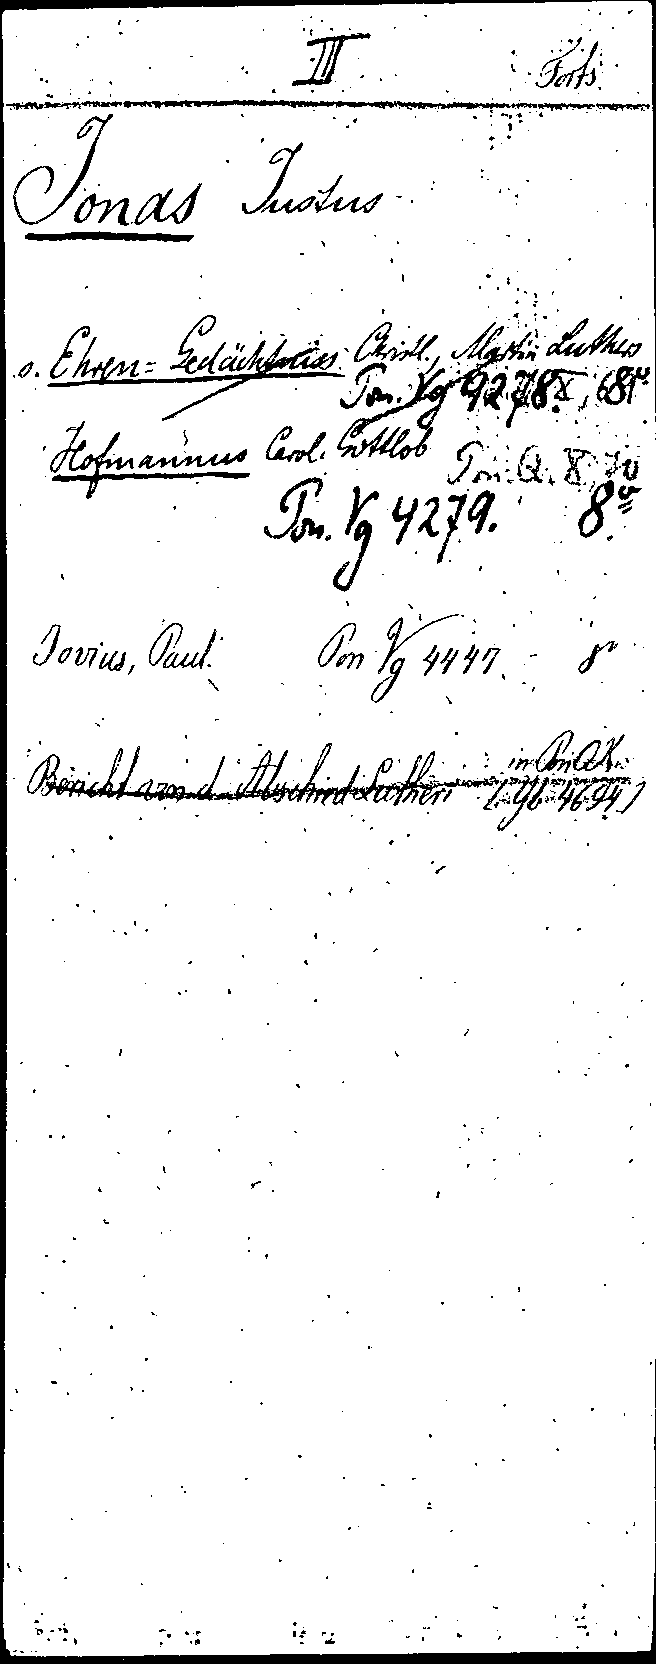 III Forts.
Jonas Justus
s. Ehren=Gedächtniss Christl., Martin Luthers
Pon. Vg 9278
Hofmannus Carol. Gottlob Pon. Q. X, 70
Pon. Vg 4279. 8º
Jovius, Paul. Pon Vg 4447. 8º
Bericht von d. Abschied Lutheri in Pon QK